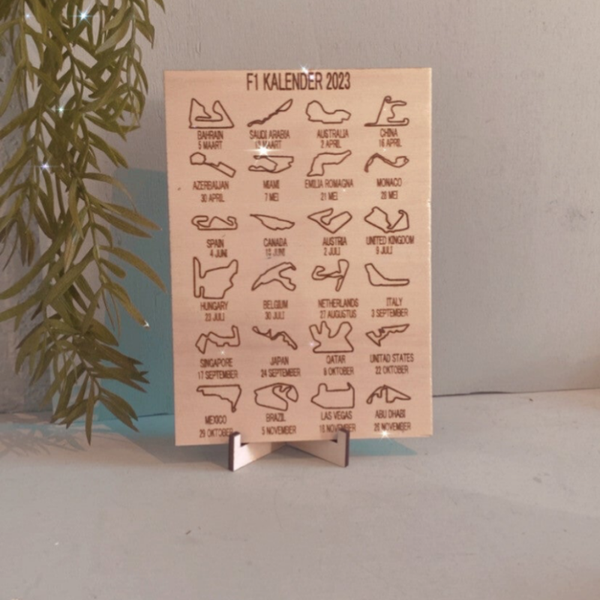 F1 KALENDER 2023
BAHRAIN SAUDI ARABIA AUSTRALIA CHINA
5 MAART MAART 2 APRIL 16 APRIL
AZERBAIJAN MIAMI EMILIA ROMAGNA MONACO
30 APRIL 7 MEI 21 MEI 28 MEI
SPAIN CANADA AUSTRIA UNITED KINGDOM
4 JUNI JUNI 2 JULI 9 JULI
HUNGARY BELGIUM NETHERLANDS ITALY
23 JULI 30 JULI 27 AUGUSTUS 3 SEPTEMBER
SINGAPORE JAPAN QATAR UNITED STATES
17 SEPTEMBER 24 SEPTEMBER 8 OKTOBER 22 OKTOBER
MEXICO BRAZIL LAS VEGAS ABU DHABI
29 OKTOBER 5 NOVEMBER NOVEMBER 26 NOVEMBER